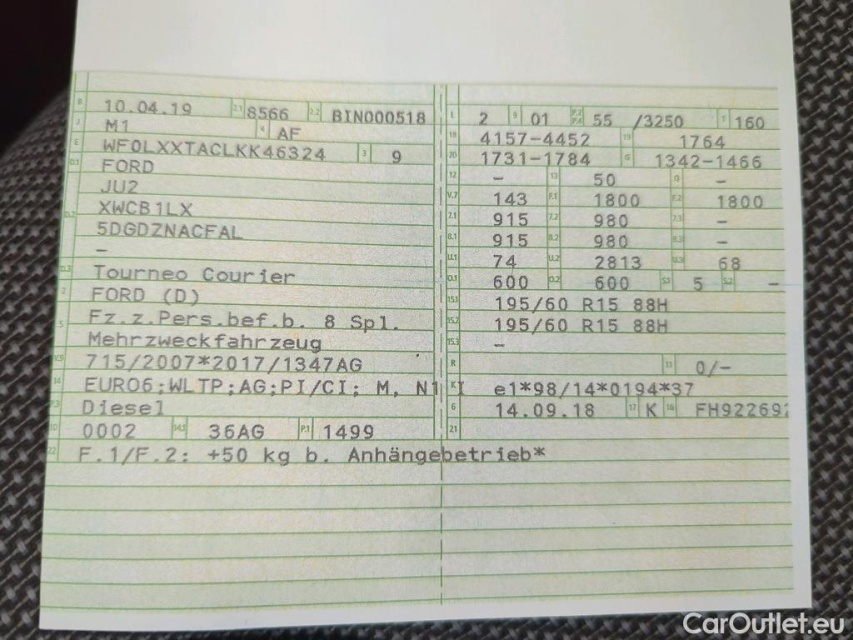 B 10.04.19 2.1 8566 2.2 BIN000518
J M1 4 AF
E WF0LXXTACLKK46324 3 9
D.1 FORD
JU2
D.2 XWCB1LX
5DGDZNACFAL
–
D.3 Tourneo Courier
2 FORD (D)
5 Fz.z.Pers.bef.b. 8 Spl.
Mehrzweckfahrzeug
V.9 715/2007*2017/1347AG
14 EURO6;WLTP;AG;PI/CI; M, N1 I
P.3 Diesel
10 0002 14.1 36AG P.1 1499
22 F.1/F.2: +50 kg b. Anhängebetrieb*
L 2 9 01 P.2 P.4 55 /3250 T 160
18 4157-4452 19 1764
20 1731-1784 G 1342-1466
12 – 13 50 Q –
V.7 143 F.1 1800 F.2 1800
7.1 915 7.2 980 7.3 –
8.1 915 8.2 980 8.3 –
U.1 74 U.2 2813 U.3 68
O.1 600 O.2 600 S.1 5 S.2 –
15.1 195/60 R15 88H
15.2 195/60 R15 88H
15.3 –
R 11 0/–
K e1*98/14*0194*37
6 14.09.18 17 K 16 FH922692
21
CarOutlet.eu